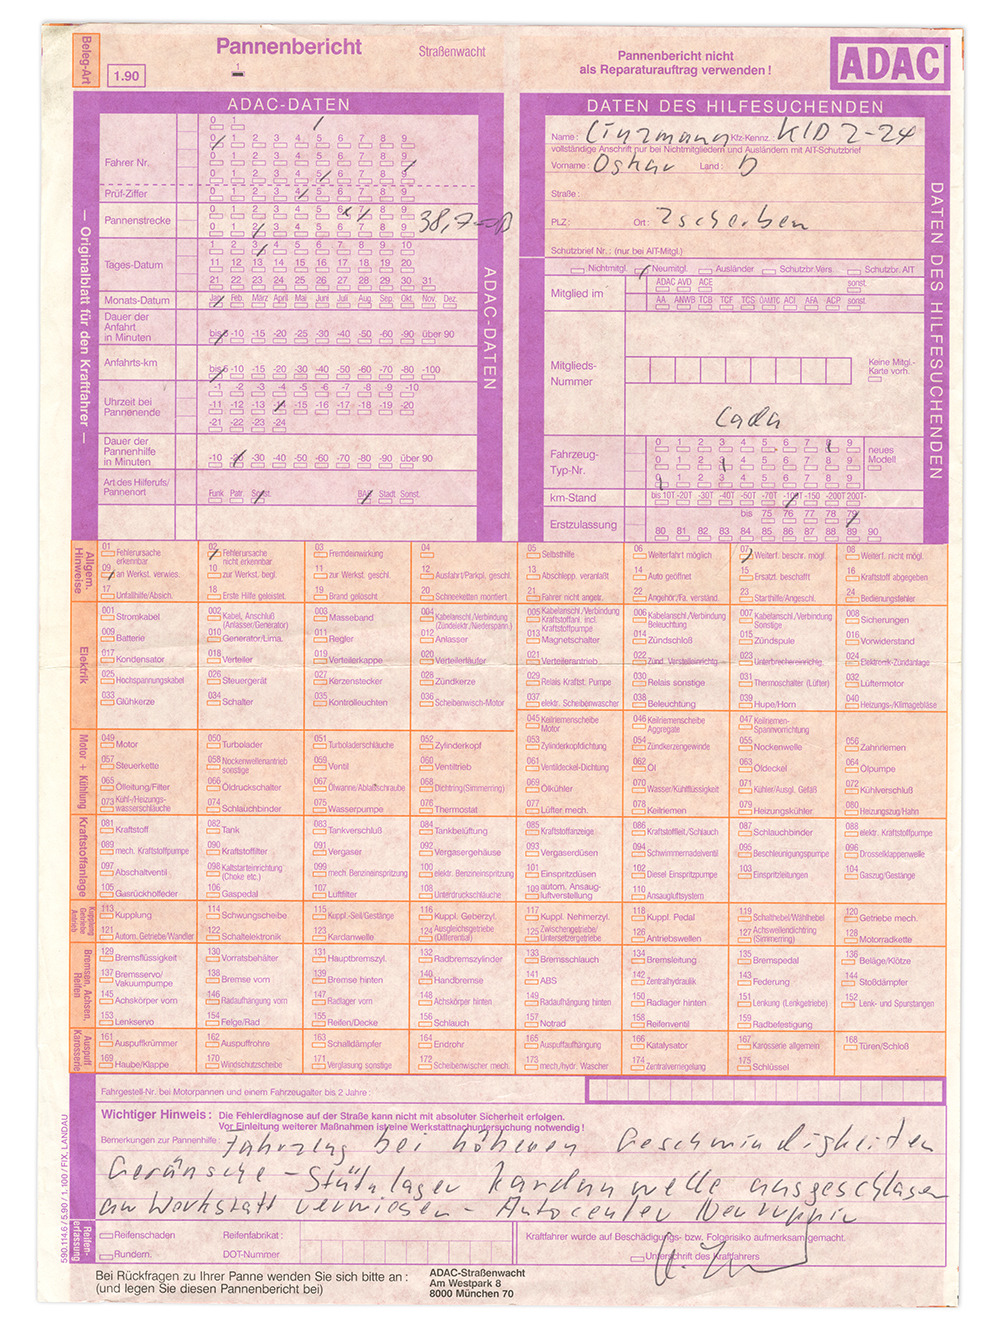 Beleg-Art
1.90
Pannenbericht
1
Straßenwacht
Pannenbericht nicht
als Reparaturauftrag verwenden !
ADAC
— Originalblatt für den Kraftfahrer —
ADAC-DATEN
ADAC-DATEN
0 1
0 1 2 3 4 5 6 7 8 9
Fahrer Nr.
0 1 2 3 4 5 6 7 8 9
0 1 2 3 4 5 6 7 8 9
Prüf-Ziffer
0 1 2 3 4 5 6 7 8 9
Pannenstrecke
0 1 2 3 4 5 6 7 8 9
38,7
0 1 2 3 4 5 6 7 8 9
Tages-Datum
1 2 3 4 5 6 7 8 9 10
11 12 13 14 15 16 17 18 19 20
21 22 23 24 25 26 27 28 29 30 31
Monats-Datum
Jan. Feb. März April Mai Juni Juli Aug. Sep. Okt. Nov. Dez.
Dauer der
Anfahrt
in Minuten
bis 5 -10 -15 -20 -25 -30 -40 -50 -60 -90 über 90
Anfahrts-km
bis 5 -10 -15 -20 -30 -40 -50 -60 -70 -80 -100
Uhrzeit bei
Pannenende
-1 -2 -3 -4 -5 -6 -7 -8 -9 -10
-11 -12 -13 -14 -15 -16 -17 -18 -19 -20
-21 -22 -23 -24
Dauer der
Pannenhilfe
in Minuten
-10 -20 -30 -40 -50 -60 -70 -80 -90 über 90
Art des Hilferufs/
Pannenort
Funk Patr. Sonst. BAB Stadt Sonst.
DATEN DES HILFESUCHENDEN
DATEN DES HILFESUCHENDEN
Name: Linzmann Kfz-Kennz.: KID 2-24
vollständige Anschrift nur bei Nichtmitgliedern und Ausländern mit AIT-Schutzbrief
Vorname: Oskar Land: D
Straße:
PLZ: Ort: Zscherben
Schutzbrief Nr.: (nur bei AIT-Mitgl.)
Nichtmitgl. Neumitgl. Ausländer Schutzbr.Vers. Schutzbr. AIT
Mitglied im
ADAC AVD ACE sonst.
AA ANWB TCB TCF TCS ÖAMTC ACI AFA ACP sonst.
Mitglieds-
Nummer
Keine Mitgl.-
Karte vorh.
Lada
Fahrzeug-
Typ-Nr.
0 1 2 3 4 5 6 7 8 9
0 1 2 3 4 5 6 7 8 9
0 1 2 3 4 5 6 7 8 9
neues
Modell
km-Stand
bis 10T -20T -30T -40T -50T -70T -100T -150 -200T 200T-
Erstzulassung
bis 75 76 77 78 79
80 81 82 83 84 85 86 87 88 89 90
Allgem.
Hinweise
01 Fehlerursache erkennbar
02 Fehlerursache nicht erkennbar
03 Fremdeinwirkung
04
05 Selbsthilfe
06 Weiterfahrt möglich
07 Weiterf. beschr. mögl.
08 Weiterf. nicht mögl.
09 an Werkst. verwies.
10 zur Werkst. begl.
11 zur Werkst. geschl.
12 Ausfahrt/Parkpl. geschl.
13 Abschlepp. veranlaßt
14 Auto geöffnet
15 Ersatzt. beschafft
16 Kraftstoff abgegeben
17 Unfallhilfe/Absich.
18 Erste Hilfe geleistet
19 Brand gelöscht
20 Schneeketten montiert
21 Fahrer nicht angetr.
22 Angehör./Fa. verständ.
23 Starthilfe/Angeschl.
24 Bedienungsfehler
Elektrik
001 Stromkabel
002 Kabel, Anschluß (Anlasser/Generator)
003 Masseband
004 Kabelanschl./Verbindung (Zündelektr./Niederspann.)
005 Kabelanschl./Verbindung Kraftstoffanl. incl. Kraftstoffpumpe
006 Kabelanschl./Verbindung Beleuchtung
007 Kabelanschl./Verbindung Sonstige
008 Sicherungen
009 Batterie
010 Generator/Lima.
011 Regler
012 Anlasser
013 Magnetschalter
014 Zündschloß
015 Zündspule
016 Vorwiderstand
017 Kondensator
018 Verteiler
019 Verteilerkappe
020 Verteilerläufer
021 Verteilerantrieb
022 Zünd. Verstelleinrichtg.
023 Unterbrechereinrichtg.
024 Elektronik-Zündanlage
025 Hochspannungskabel
026 Steuergerät
027 Kerzenstecker
028 Zündkerze
029 Relais Kraftst. Pumpe
030 Relais sonstige
031 Thermoschalter (Lüfter)
032 Lüftermotor
033 Glühkerze
034 Schalter
035 Kontrolleuchten
036 Scheibenwisch-Motor
037 elektr. Scheibenwascher
038 Beleuchtung
039 Hupe/Horn
040 Heizungs-/Klimagebläse
Motor + Kühlung
045 Keilriemenscheibe Motor
046 Keilriemenscheibe Aggregate
047 Keilriemen-Spannvorrichtung
049 Motor
050 Turbolader
051 Turboladerschläuche
052 Zylinderkopf
053 Zylinderkopfdichtung
054 Zündkerzengewinde
055 Nockenwelle
056 Zahnriemen
057 Steuerkette
058 Nockenwellenantrieb sonstige
059 Ventil
060 Ventiltrieb
061 Ventildeckel-Dichtung
062 Öl
063 Öldeckel
064 Ölpumpe
065 Ölleitung/Filter
066 Öldruckschalter
067 Ölwanne/Ablaßschraube
068 Dichtring(Simmerring)
069 Ölkühler
070 Wasser/Kühlflüssigkeit
071 Kühler/Ausgl. Gefäß
072 Kühlverschluß
073 Kühl-/Heizungs-wasserschläuche
074 Schlauchbinder
075 Wasserpumpe
076 Thermostat
077 Lüfter mech.
078 Keilriemen
079 Heizungskühler
080 Heizungszug/Hahn
Kraftstoffanlage
081 Kraftstoff
082 Tank
083 Tankverschluß
084 Tankbelüftung
085 Kraftstoffanzeige
086 Kraftstoffleit./Schlauch
087 Schlauchbinder
088 elektr. Kraftstoffpumpe
089 mech. Kraftstoffpumpe
090 Kraftstoffilter
091 Vergaser
092 Vergasergehäuse
093 Vergaserdüsen
094 Schwimmernadelventil
095 Beschleunigungspumpe
096 Drosselklappenwelle
097 Abschaltventil
098 Kaltstarteinrichtung (Choke etc.)
099 mech. Benzineinspritzung
100 elektr. Benzineinspritzung
101 Einspritzdüsen
102 Diesel Einspritzpumpe
103 Einspritzleitungen
104 Gaszug/Gestänge
105 Gasrückholfeder
106 Gaspedal
107 Luftfilter
108 Unterdruckschläuche
109 autom. Ansaug-luftverstellung
110 Ansaugluftsystem
Kupplung
Getriebe
Antrieb
113 Kupplung
114 Schwungscheibe
115 Kuppl.-Seil/Gestänge
116 Kuppl. Geberzyl.
117 Kuppl. Nehmerzyl.
118 Kuppl. Pedal
119 Schalthebel/Wählhebel
120 Getriebe mech.
121 Autom. Getriebe/Wandler
122 Schaltelektronik
123 Kardanwelle
124 Ausgleichsgetriebe (Differential)
125 Zwischengetriebe/Untersetzergetriebe
126 Antriebswellen
127 Achswellendichtring (Simmerring)
128 Motorradkette
Bremsen, Achsen,
Reifen
129 Bremsflüssigkeit
130 Vorratsbehälter
131 Hauptbremszyl.
132 Radbremszylinder
133 Bremsschlauch
134 Bremsleitung
135 Bremspedal
136 Beläge/Klötze
137 Bremsservo/Vakuumpumpe
138 Bremse vorn
139 Bremse hinten
140 Handbremse
141 ABS
142 Zentralhydraulik
143 Federung
144 Stoßdämpfer
145 Achskörper vorn
146 Radaufhängung vorn
147 Radlager vorn
148 Achskörper hinten
149 Radaufhängung hinten
150 Radlager hinten
151 Lenkung (Lenkgetriebe)
152 Lenk- und Spurstangen
153 Lenkservo
154 Felge/Rad
155 Reifen/Decke
156 Schlauch
157 Notrad
158 Reifenventil
159 Radbefestigung
Auspuff
Karosserie
161 Auspuffkrümmer
162 Auspuffrohre
163 Schalldämpfer
164 Endrohr
165 Auspuffaufhängung
166 Katalysator
167 Karosserie allgemein
168 Türen/Schloß
169 Haube/Klappe
170 Windschutzscheibe
171 Verglasung sonstige
172 Scheibenwischer mech.
173 mech./hydr. Wascher
174 Zentralverriegelung
175 Schlüssel
Fahrgestell-Nr. bei Motorpannen und einem Fahrzeugalter bis 2 Jahre:
Wichtiger Hinweis: Die Fehlerdiagnose auf der Straße kann nicht mit absoluter Sicherheit erfolgen.
Vor Einleitung weiterer Maßnahmen ist eine Werkstattnachuntersuchung notwendig !
Bemerkungen zur Pannenhilfe: Fahrzeug bei höheren Geschwindigkeiten
Geräusche – Stützlager Kardanwelle ausgeschlagen
an Werkstatt verwiesen – Autocenter Neuruppin
Reifen-
erfassung
Reifenschaden
Reifenfabrikat:
Rundern.
DOT-Nummer
Kraftfahrer wurde auf Beschädigungs- bzw. Folgerisiko aufmerksam gemacht.
Unterschrift des Kraftfahrers
590.114.6 / 5.90 / 1.100 / FIX, LANDAU
Bei Rückfragen zu Ihrer Panne wenden Sie sich bitte an :
(und legen Sie diesen Pannenbericht bei)
ADAC-Straßenwacht
Am Westpark 8
8000 München 70